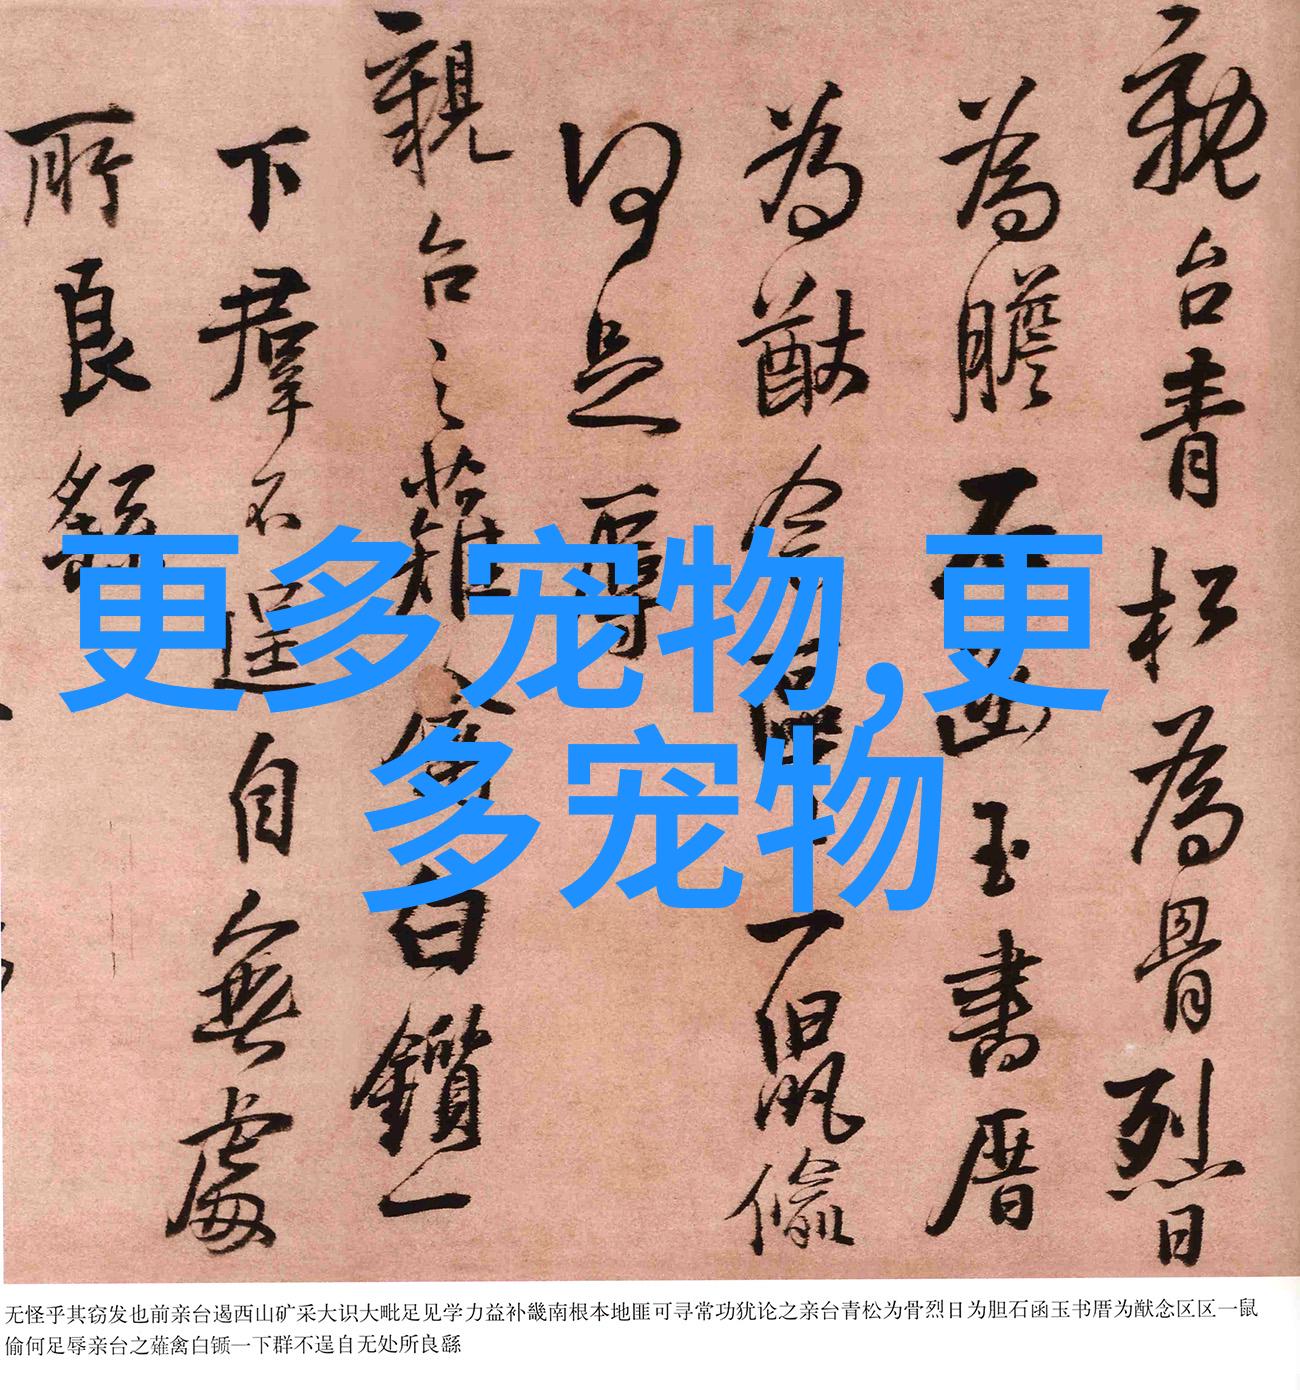 親台青松為骨烈日
為膽石函玉書厝
為猷念區區一鼠偷
何足辱
親台之薙禽白鑕一
下羣不逞自無處
所良繇
更多宠物,更
多宠物
无怪乎其窃发也前亲台遏西山矿采大识大毗足见学力益补畿南根本地匪可寻常功犹论之亲台青松为骨烈日为胆石函玉书厝为猷念区区一鼠
偷何足辱亲台之薙禽白锧一下群不逞自无处所良繇